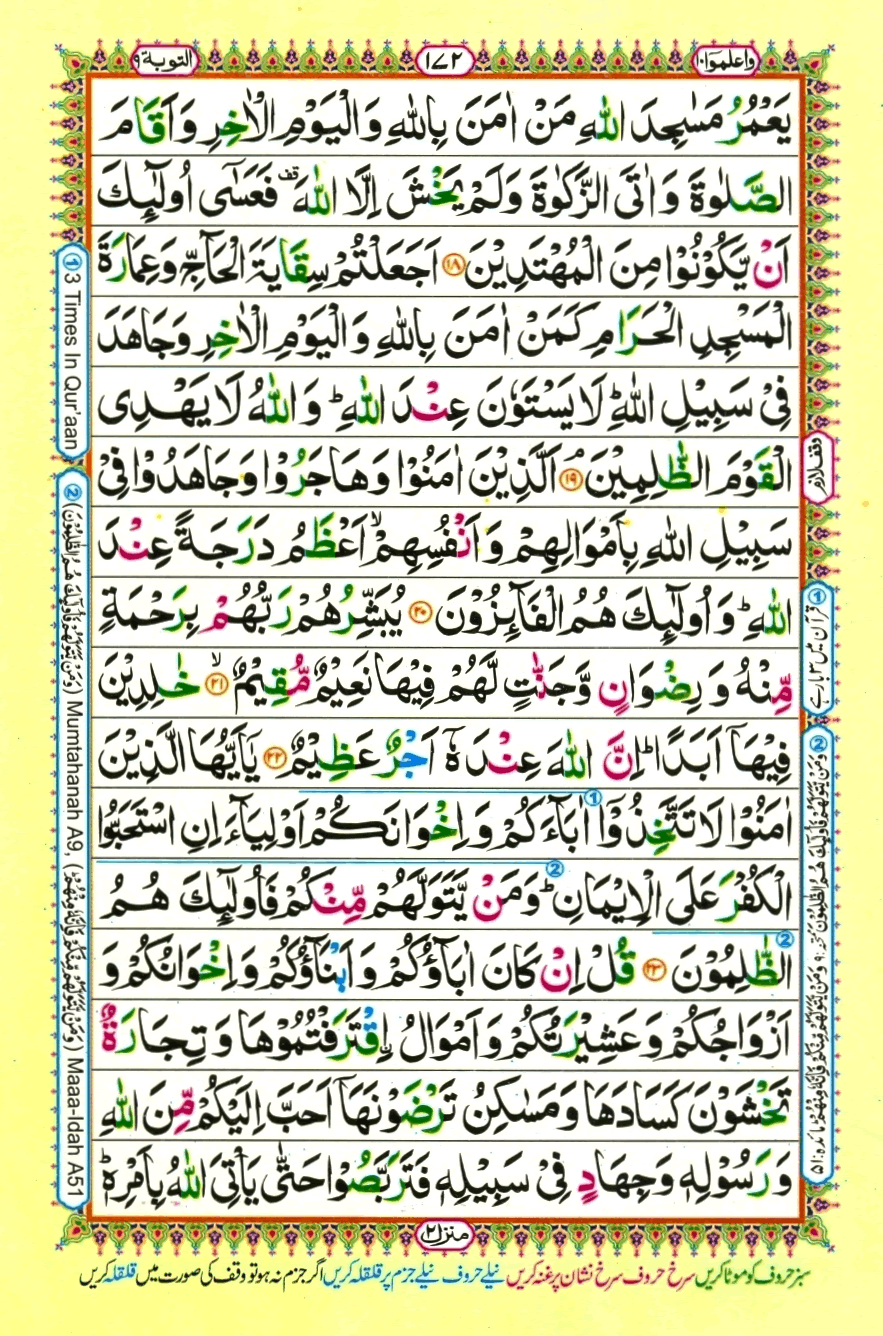 واعلموا ١٠
١٧٢
التوبة ٩
يَعْمُرُ مَسٰجِدَ اللّٰهِ مَنْ اٰمَنَ بِاللّٰهِ وَالْيَوْمِ الْاٰخِرِ وَاَقَامَ
الصَّلٰوةَ وَاٰتَى الزَّكٰوةَ وَلَمْ يَخْشَ اِلَّا اللّٰهَ قف فَعَسٰٓى اُولٰٓئِكَ
اَنْ يَّكُوْنُوْا مِنَ الْمُهْتَدِيْنَ ١٨ اَجَعَلْتُمْ سِقَايَةَ الْحَآجِّ وَعِمَارَةَ
الْمَسْجِدِ الْحَرَامِ كَمَنْ اٰمَنَ بِاللّٰهِ وَالْيَوْمِ الْاٰخِرِ وَجَاهَدَ
فِىْ سَبِيْلِ اللّٰهِ ؕ لَا يَسْتَوٗنَ عِنْدَ اللّٰهِ ؕ وَاللّٰهُ لَا يَهْدِى
الْقَوْمَ الظّٰلِمِيْنَ ۘ ١٩ اَلَّذِيْنَ اٰمَنُوْا وَهَاجَرُوْا وَجَاهَدُوْا فِىْ
سَبِيْلِ اللّٰهِ بِاَمْوَالِهِمْ وَاَنْفُسِهِمْ ۙ اَعْظَمُ دَرَجَةً عِنْدَ
اللّٰهِ ؕ وَاُولٰٓئِكَ هُمُ الْفَآئِزُوْنَ ٢٠ يُبَشِّرُهُمْ رَبُّهُمْ بِرَحْمَةٍ
مِّنْهُ وَرِضْوَانٍ وَّجَنّٰتٍ لَّهُمْ فِيْهَا نَعِيْمٌ مُّقِيْمٌ ۙ ٢١ خٰلِدِيْنَ
فِيْهَآ اَبَدًا ؕ اِنَّ اللّٰهَ عِنْدَهٗٓ اَجْرٌ عَظِيْمٌ ٢٢ يٰٓاَيُّهَا الَّذِيْنَ
اٰمَنُوْا لَا تَتَّخِذُوْٓا اٰبَآءَكُمْ وَاِخْوَانَكُمْ اَوْلِيَآءَ اِنِ اسْتَحَبُّوا
الْكُفْرَ عَلَى الْاِيْمَانِ ؕ وَمَنْ يَّتَوَلَّهُمْ مِّنْكُمْ فَاُولٰٓئِكَ هُمُ
الظّٰلِمُوْنَ ٢٣ قُلْ اِنْ كَانَ اٰبَآؤُكُمْ وَاَبْنَآؤُكُمْ وَاِخْوَانُكُمْ وَ
اَزْوَاجُكُمْ وَعَشِيْرَتُكُمْ وَاَمْوَالُ اِۨقْتَرَفْتُمُوْهَا وَتِجَارَةٌ
تَخْشَوْنَ كَسَادَهَا وَمَسٰكِنُ تَرْضَوْنَهَآ اَحَبَّ اِلَيْكُمْ مِّنَ اللّٰهِ
وَرَسُوْلِهٖ وَجِهَادٍ فِىْ سَبِيْلِهٖ فَتَرَبَّصُوْا حَتّٰى يَاْتِىَ اللّٰهُ بِاَمْرِهٖ ؕ
وقف لازم
① قرآن میں ۳ بار ہے
② وَمَنْ يَّتَوَلَّهُمْ فَاُولٰٓئِكَ هُمُ الظّٰلِمُوْنَ ممتحنہ: ۹، وَمَنْ يَّتَوَلَّهُمْ مِّنْكُمْ فَاِنَّهٗ مِنْهُمْ مائدہ: ۵۱
① 3 Times In Qur'aan
② (وَمَنْ يَّتَوَلَّهُمْ فَاُولٰٓئِكَ هُمُ الظّٰلِمُوْنَ) Mumtahanah A9, (وَمَنْ يَّتَوَلَّهُمْ مِّنْكُمْ فَاِنَّهٗ مِنْهُمْ) Maaa-Idah A51
① ② ②
منزل ٢
سبز حروف کو موٹا کریں سرخ حروف سرخ نشان پر غنہ کریں نیلے حروف نیلے جزم پر قلقلہ کریں اگر جزم نہ ہو تو وقف کی صورت میں قلقلہ کریں